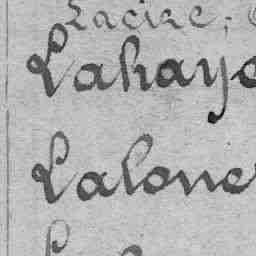 Lacire,
Lahaye
Lalone